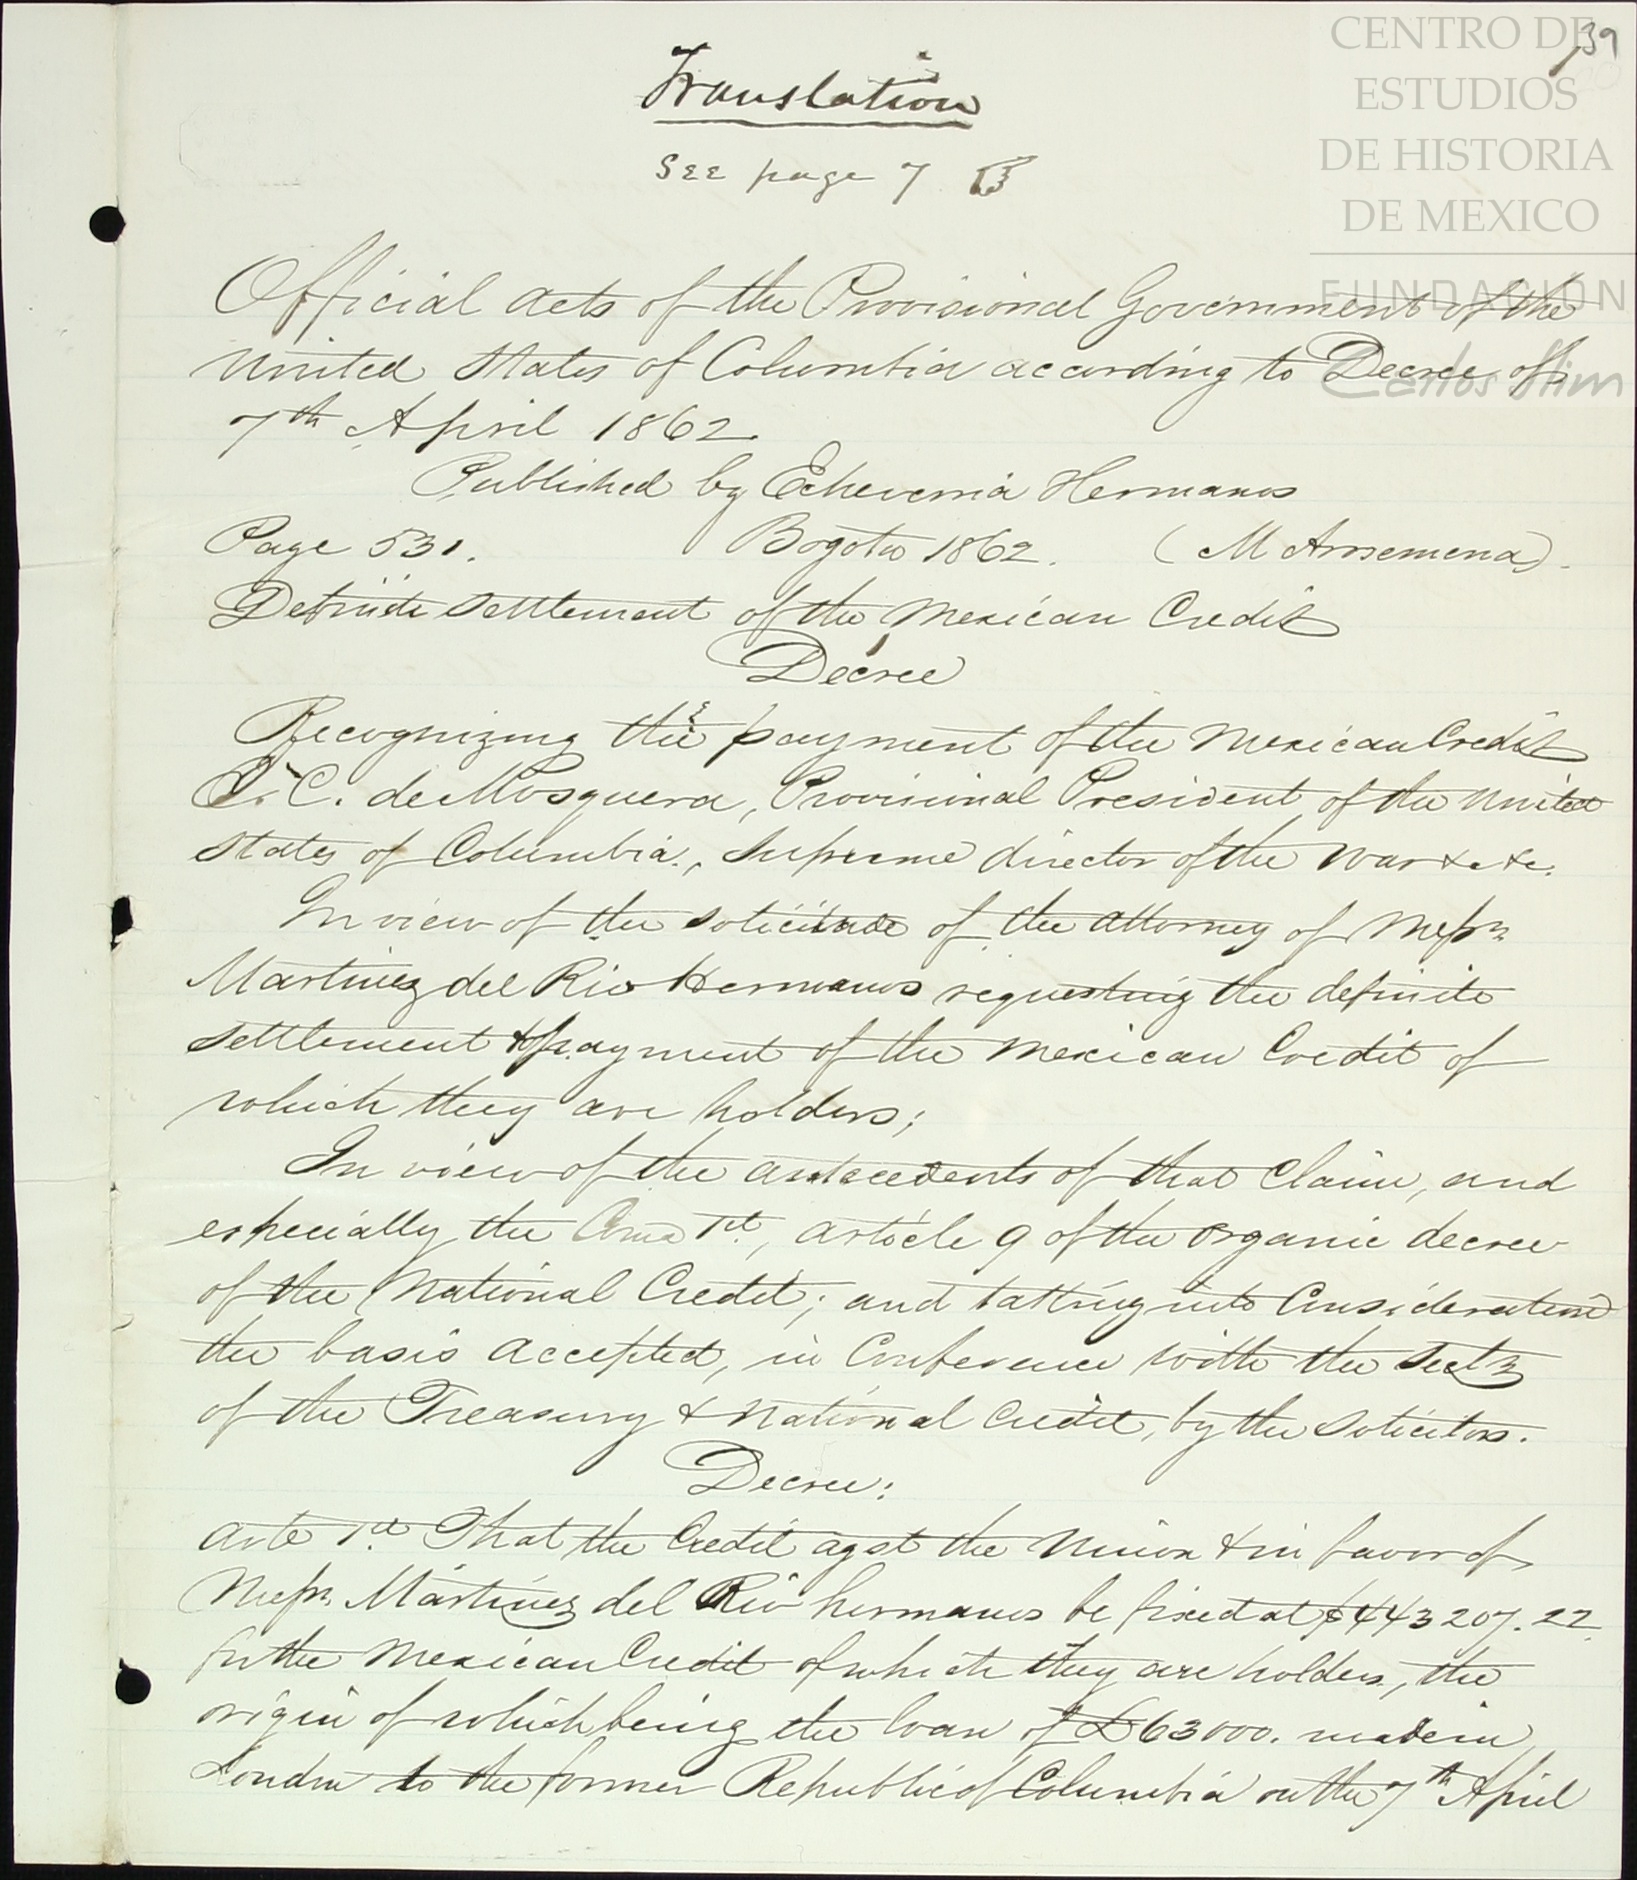 CENTRO DE
ESTUDIOS
DE HISTORIA
DE MEXICO
FUNDACIÓN
Carlos Slim
39
Translation
See page 7
Official acts of the Provisional Government of the
United States of Columbia according to Decree of
7th April 1862.
Published by Echeverria Hermanos
Page 531. Bogota 1862. (M Arosemena).
Definite settlement of the Mexican Credit
Decree
Recognizing the & payment of the Mexican Credit
T. C. de Mosquera, Provisional President of the United
States of Columbia, Supreme director of the War &c &c.
In view of the solicitude of the attorney of Messrs
Martinez del Rio Hermanos requesting the definite
settlement & payment of the Mexican Credit of
which they are holders;
In view of the antecedents of that Claim, and
especially the 1st, article 9 of the organic decree
of the National Credit; and taking into Consideration
the basis accepted, in Conference with the Secty
of the Treasury & National Credit, by the Solicitors.
Decree:
Arte 1st That the Credit agst the Union & in favor of
Messrs. Martinez del Rio hermanos be fixed at $443207.22
for the Mexican Credit of which they are holders, the
origin of which being the loan of £63000. made in
London to the former Republic of Columbia on the 7th April